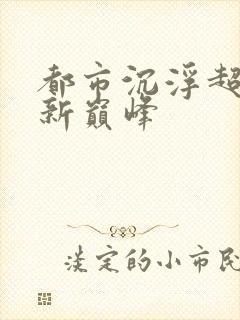 都市沉浮超
新巅峰
淡定的小市民